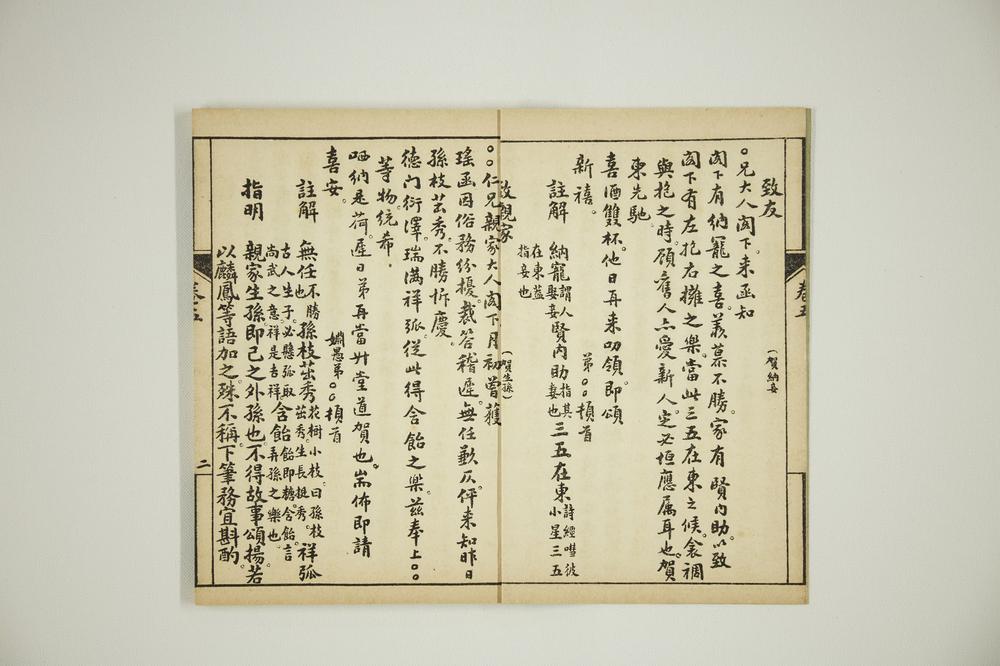 致友
(賀納妾)
○兄大人閣下。来函知
閣下有納寵之喜。羨慕不勝。家有賢內助。以致
閣下有左抱右擁之樂。當此三五在東之候。衾裯
與抱之時。願舊人亦愛新人。定必垣應属耳也。賀
東先馳。
喜酒雙杯。他日再来叨領。即頌
新禧。
弟○○頓首
註解
納寵謂人娶妾賢內助指其妻也三五在東詩經嘒彼小星三五
在東蓋指妾也
致親家
(賀生孫)
○○仁兄親家大人閣下。月初曾獲
瑤函。因俗務紛擾。裁答稽遲。無任歉仄。伻来知昨日
孫枝茁秀。不勝忻慶。
德门衍澤。瑞满祥弧。從此得含飴之樂。兹奉上○○
等物。统希。
哂納是荷。遲日弟再當升堂道賀也。耑佈即請
喜安。
姻愚弟○○頓首
註解
無任不勝也孫枝茁秀花樹小枝。曰孫枝茁秀。生長挺秀。祥弧
古人生子。必懸弧取尚武之意祥是吉祥含飴飴即糖。含飴。言弄孫之樂也
指明
親家生孫即己之外孫也。不得故事頌揚。若
以麟鳳等語加之。殊不稱。下筆務宜斟酌。
卷五
卷五
二